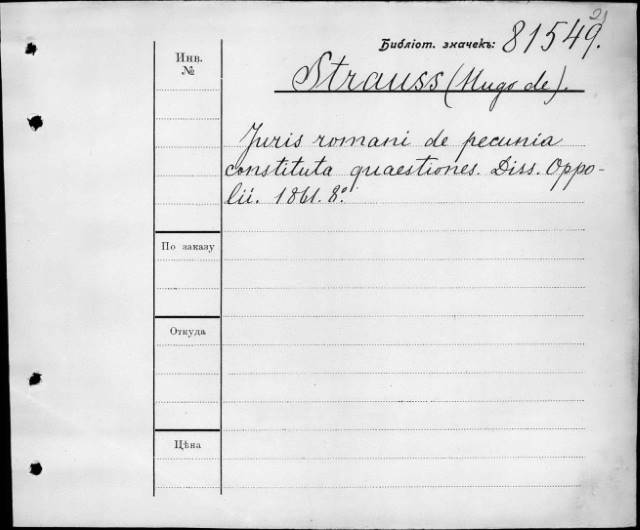 21
Библіот. значекъ: 81549.
Инв.
№
Strauss (Hugo de).
Juris romani de pecunia
constituta quaestiones. Diss. Oppo-
lii. 1861. 8°.
По заказу
Откуда
Цѣна